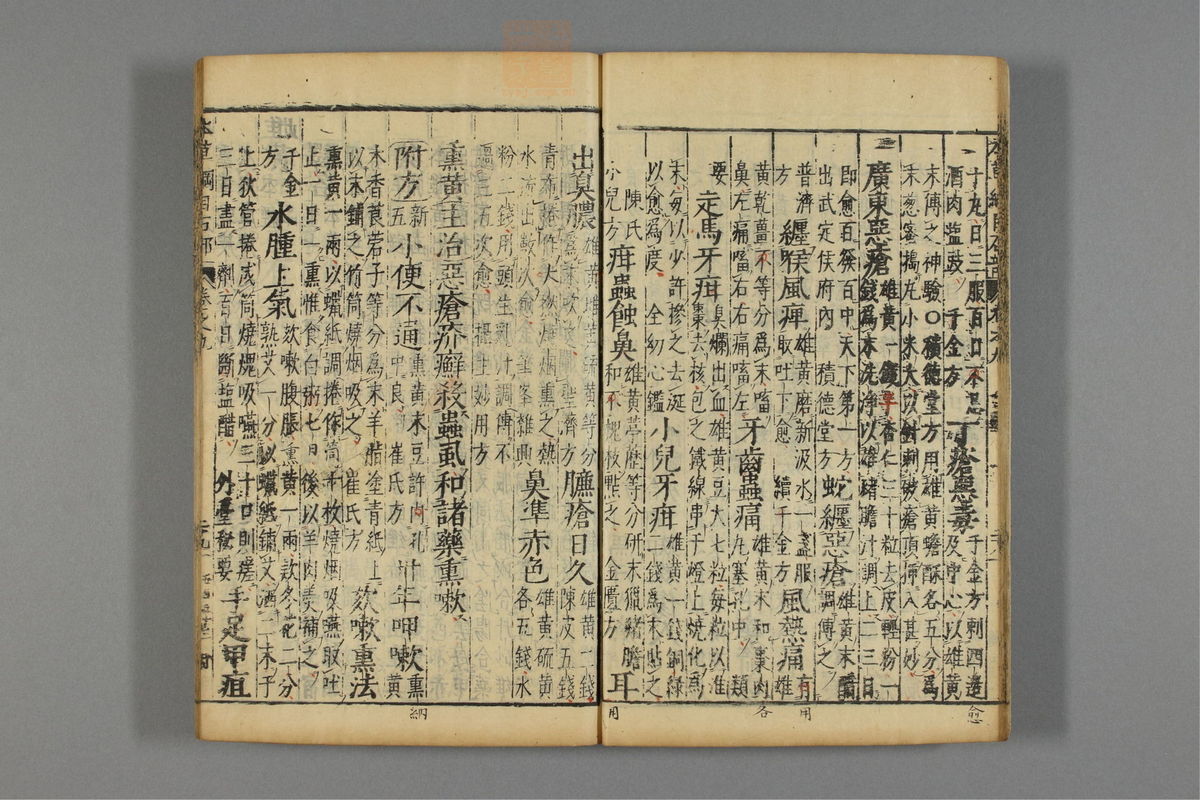 十九日三服百日不忌酒肉盐豉千金方丁瘡惡毒千金方刺四邊及中心以雄黄
末傅之神驗〇積德堂方用雄黄蟾酥各五分爲末葱蜜搗丸小米大以針刺破瘡頂插入甚妙
廣東惡瘡雄黄一錢半杏仁三十粒去皮輕粉一錢爲末洗淨以雄猪膽汁調上二三日
即愈百發百中天下第一方出武定侯府内積德堂方蛇纏惡瘡雄黄末醋調傅之
普濟方纏喉風痺雄黄磨新汲水一盞服取吐下愈續千金方風熱痛有用雄
黄乾薑不等分爲末㗜鼻左痛㗜右右痛㗜左牙齒蟲痛雄黄末和棗肉丸塞孔中類
要走馬牙疳臭爛出血雄黄豆大七粒每粒以淮棗去核包之鐵線串于燈上燒化爲
末每以少許摻之去涎以愈爲度全幼心鑑小兒牙疳雄黄一錢銅緑二錢爲末貼之
陳氏小兒方疳蟲蝕鼻雄黄葶藶等分研末猟猪膽和不槐枚點之金匱方耳
出臭膿雄黄雌黄硫黄等分爲末吹之聖濟方臁瘡日久雄黄二錢陳皮五錢
青布捲作大撚燒烟熏之熱水流出數次愈筆峯雜興鼻準赤色雄黄硫黄各五錢水
粉二錢用頭生乳汁調傅不過三五次愈攝生妙用方
熏黄主治惡瘡疥癬殺蟲虱和諸藥熏嗽
附方新五小便不通熏黄末豆許内孔中良崔氏方卅年呷嗽熏黄
木香莨菪子等分爲末羊脂塗青紙上以末鋪之竹筒燒烟吸之崔氏方欬嗽熏法
熏黄一兩以蠟紙調捲作筒十枚燒烟吸嚥取吐止一日一熏惟食白粥七日後以羊肉羹補之
千金方水腫上氣欬嗽腹脹熏黄一兩款冬花二分熟艾一分以蠟紙鋪艾洒二末于
上荻管捲成筒燒烟吸嚥三十口則瘥三日盡一劑百日斷盐醋外臺秘要手足甲疽
愈
用
各
用
納